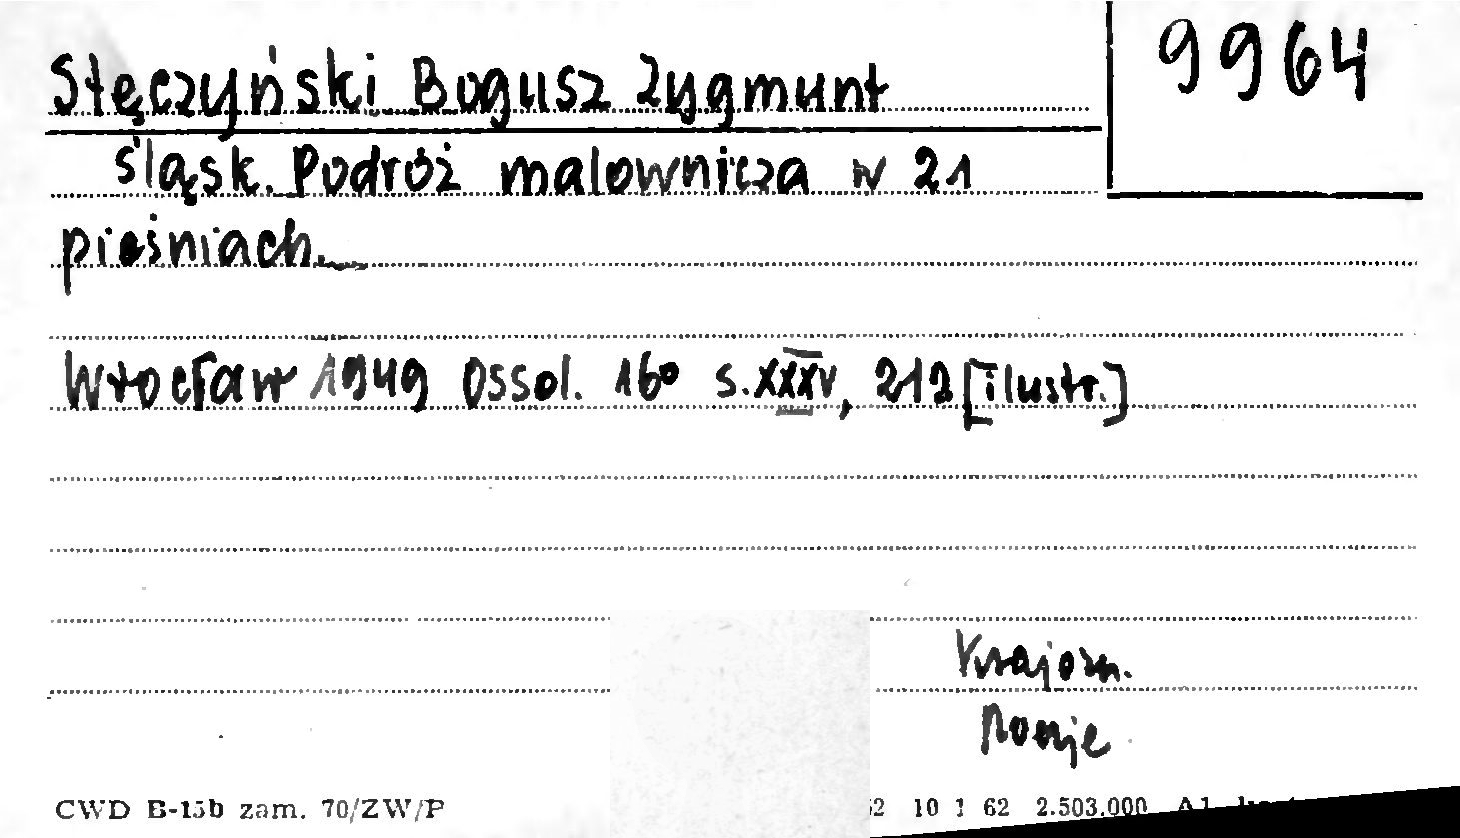 Stęczyński Bogusz Zygmunt
9964
Śląsk. Podróż malownicza w 21
pieśniach.
Wrocław 1949 Ossol. 16° s. XXXV, 212 [ilustr.]
Krajozn.
CWD B-15b zam. 70/ZW/P
62 10 1 62 2.503.000 A1